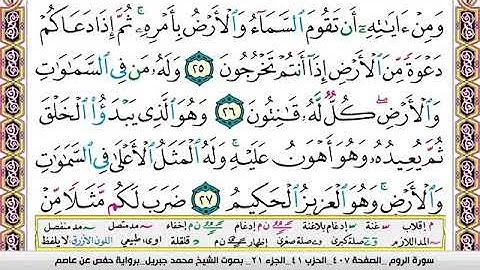 وَمِنْ ءَايَٰتِهِۦٓ أَن تَقُومَ ٱلسَّمَآءُ وَٱلْأَرْضُ بِأَمْرِهِۦ ۚ ثُمَّ إِذَا دَعَاكُمْ
دَعْوَةً مِّنَ ٱلْأَرْضِ إِذَآ أَنتُمْ تَخْرُجُونَ ٢٥ وَلَهُۥ مَن فِى ٱلسَّمَٰوَٰتِ
وَٱلْأَرْضِ ۖ كُلٌّ لَّهُۥ قَٰنِتُونَ ٢٦ وَهُوَ ٱلَّذِى يَبْدَؤُا۟ ٱلْخَلْقَ
ثُمَّ يُعِيدُهُۥ وَهُوَ أَهْوَنُ عَلَيْهِ ۚ وَلَهُ ٱلْمَثَلُ ٱلْأَعْلَىٰ فِى ٱلسَّمَٰوَٰتِ
وَٱلْأَرْضِ ۚ وَهُوَ ٱلْعَزِيزُ ٱلْحَكِيمُ ٢٧ ضَرَبَ لَكُم مَّثَلًا مِّنْ
م إقلاب غنة إدغام بلاغنة ن م إدغام ن م إخفاء مد متصل مد منفصل
المد اللازم صلة كبرى صلة صغرى إظهار ن م قلقلة اوى طبيعي اللون الأزرق لا يلفظ
سورة الروم _ الصفحة ٤٠٧ _ الحزب ٤١ _ الجزء ٢١ _ بصوت الشيخ محمد جبريل _ برواية حفص عن عاصم